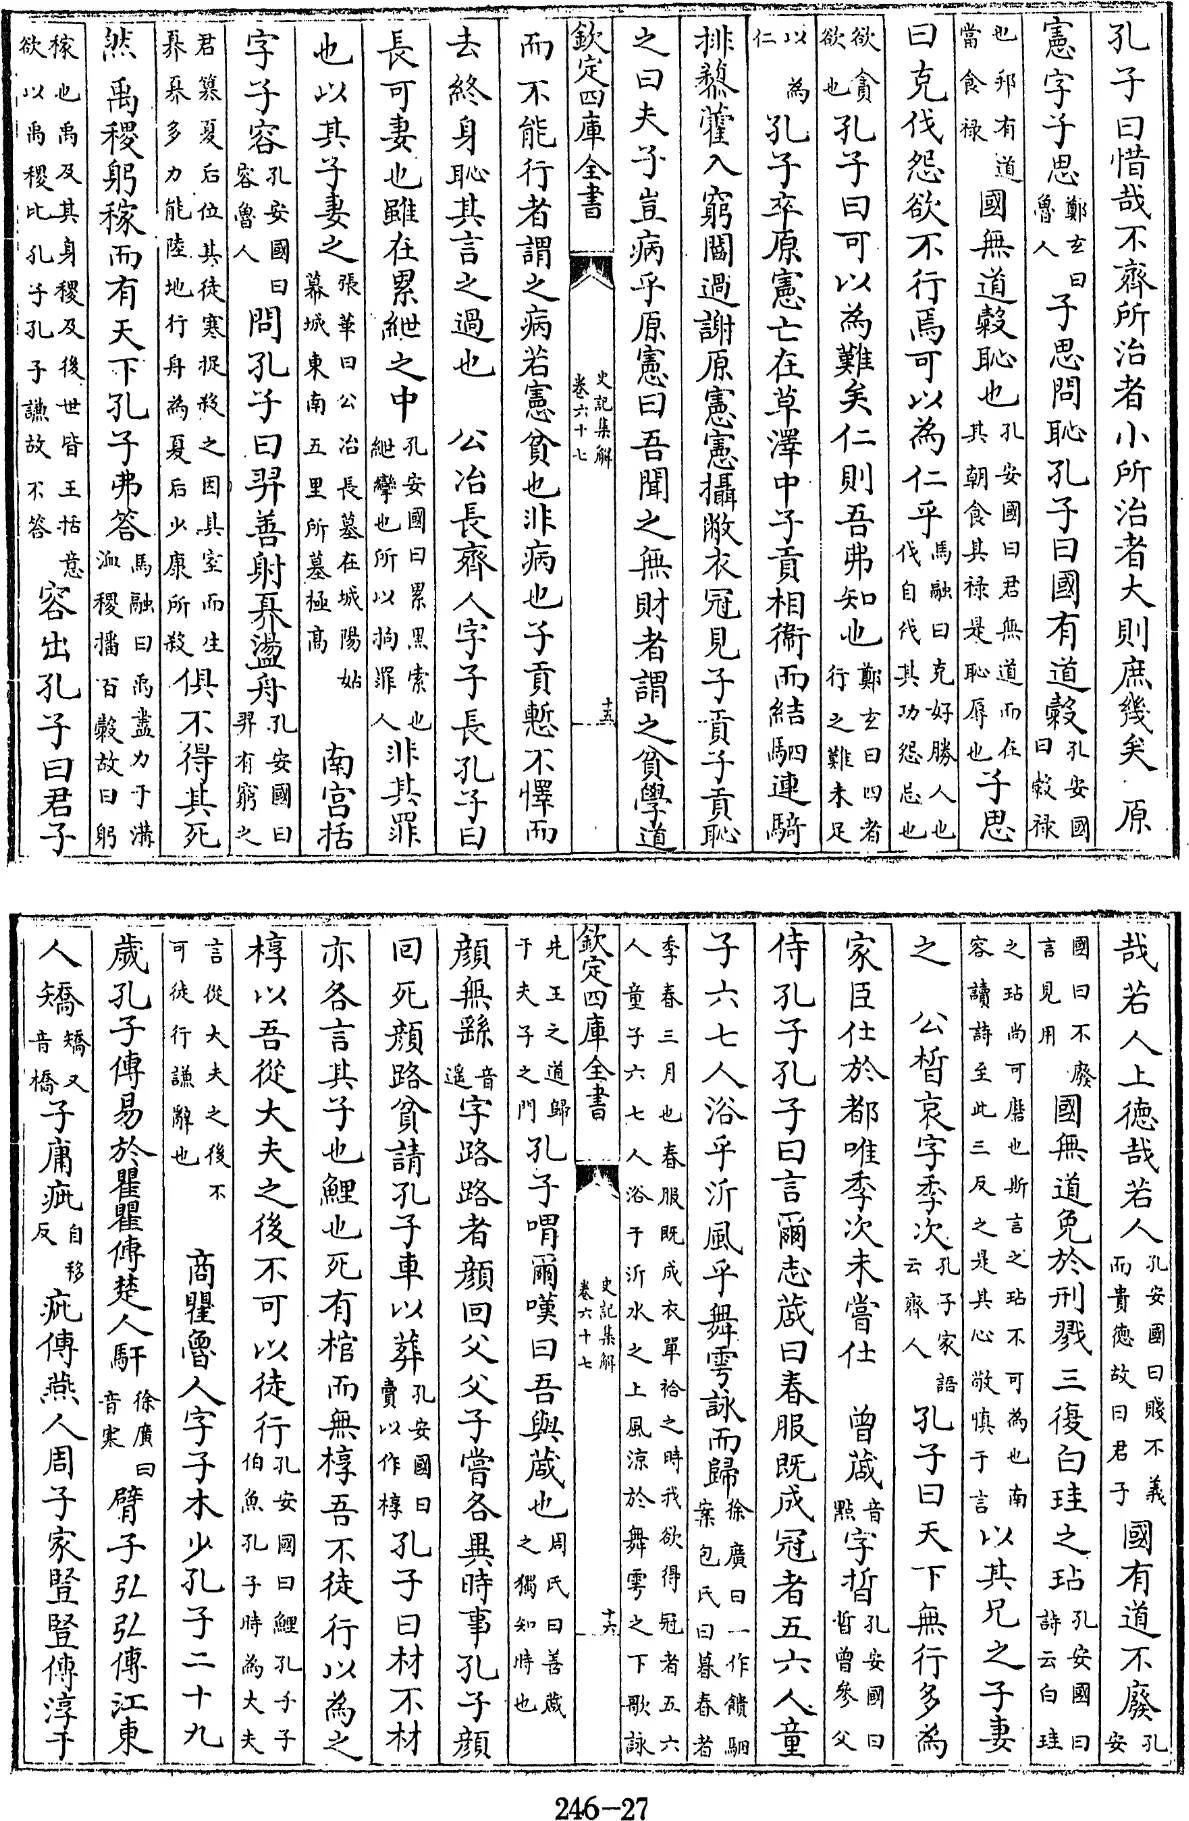 孔子曰惜哉不齊所治者小所治者大則庶幾矣 原
憲字子思鄭玄曰魯人子思問恥孔子曰國有道穀孔安國曰穀祿
也邦有道當食祿國無道穀恥也孔安國曰君無道而在其朝食其祿是恥辱也子思
曰克伐怨欲不行焉可以為仁乎馬融曰克好勝人也伐自伐其功怨忌也
欲貪欲也孔子曰可以為難矣仁則吾弗知也鄭玄曰四者行之難未足
以為仁孔子卒原憲亡在草澤中子貢相衛而結駟連騎
排藜藿入窮閻過謝原憲憲攝敝衣冠見子貢子貢恥
之曰夫子豈病乎原憲曰吾聞之無財者謂之貧學道
欽定四庫全書 史記集解卷六十七 十五
而不能行者謂之病若憲貧也非病也子貢慙不懌而
去終身恥其言之過也 公冶長齊人字子長孔子曰
長可妻也雖在累紲之中孔安國曰累黑索也紲攣也所以拘罪人非其罪
也以其子妻之張華曰公冶長墓在城陽姑幕城東南五里所墓極高 南宮括
字子容孔安國曰容魯人問孔子曰羿善射奡盪舟孔安國曰羿有窮之
君篡夏后位其徒寒浞殺之因其室而生奡奡多力能陸地行舟為夏后少康所殺俱不得其死
然禹稷躬稼而有天下孔子弗答馬融曰禹盡力于溝洫稷播百穀故曰躬
稼也禹及其身稷及後世皆王括意欲以禹稷比孔子孔子謙故不答容出孔子曰君子
哉若人上德哉若人孔安國曰賤不義而貴德故曰君子國有道不廢孔安
國曰不廢言見用國無道免於刑戮三復白珪之玷孔安國曰詩云白珪
之玷尚可磨也斯言之玷不可為也南容讀詩至此三反之是其心敬慎于言以其兄之子妻
之 公晳哀字季次孔子家語云齊人孔子曰天下無行多為
家臣仕於都唯季次未嘗仕 曾蒧音點字晳孔安國曰晳曾參父
侍孔子孔子曰言爾志蒧曰春服既成冠者五六人童
子六七人浴乎沂風乎舞雩詠而歸徐廣曰一作饋駰案包氏曰暮春者
季春三月也春服既成衣單袷之時我欲得冠者五六人童子六七人浴于沂水之上風涼於舞雩之下歌詠
欽定四庫全書 史記集解卷六十七 十六
先王之道歸于夫子之門孔子喟爾嘆曰吾與蒧也周氏曰善蒧之獨知時也
顏無繇音遙字路路者顏回父父子嘗各異時事孔子顏
回死顏路貧請孔子車以葬孔安國曰賣以作椁孔子曰材不材
亦各言其子也鯉也死有棺而無椁吾不徒行以為之
椁以吾從大夫之後不可以徒行孔安國曰鯉孔子子伯魚孔子時為大夫
言從大夫之後不可徒行謙辭也 商瞿魯人字子木少孔子二十九
歲孔子傳易於瞿瞿傳楚人馯徐廣曰音寒臂子弘弘傳江東
人矯矯又音橋子庸疵自移反疵傳燕人周子家豎豎傳淳于
246-27